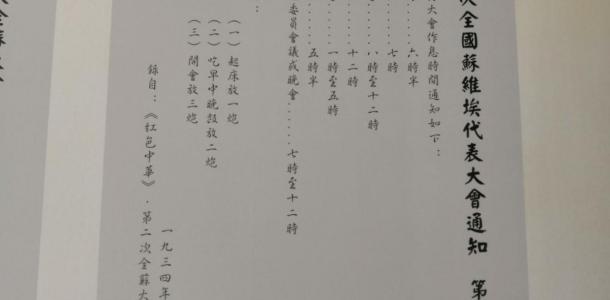 次全國蘇維埃代表大會通知 第
大會作息時間通知如下：
……六時半
……七時
……八時至十二時
……十二時
……一時至五時
……五時半
委員會議或晚會……七時至十二時
：
（一）起床放一炮
（二）吃早中晚飯放二炮
（三）開會放三炮
一九三四年
錄自：《紅色中華》·第二次全蘇大